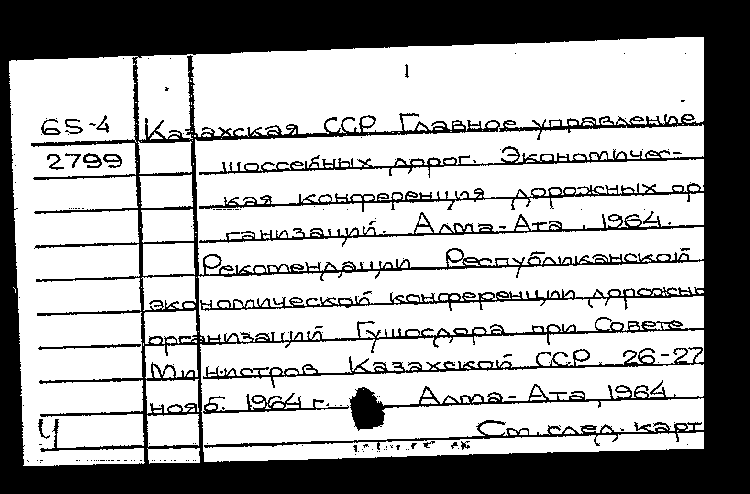 1
65-4 Казахская ССР Главное управление
2799 шоссейных дорог. Экономичес-
кая конференция дорожных ор-
ганизаций. Алма-Ата, 1964.
Рекомендации Республиканской
экономической конференции дорожны
организаций Гушосдора при Совете
Министров Казахской ССР. 26-27
нояб. 1964 г. Алма-Ата, 1964.
Ч См. след. карт